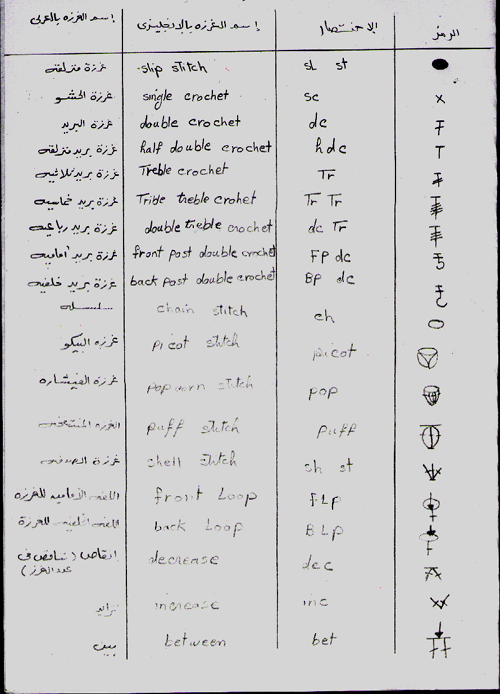 إسم الغرزه بالعربى إسم الغرزه بالإنجليزى الإختصار الرمز
غرزة منزلقه slip stitch sL st
غرزة الحشو single crochet sc x
غرزة البريد double crochet dc
غرزة بريد منزلقه half double crochet hdc T
غرزة بريد ثلاثيه Treble crochet Tr
غرزة بريد خماسيه Trible treble crohet Tr Tr
غرزة بريد رباعيه double treble crochet dc Tr
غرزة بريد أماميه front post double crochet FP dc
غرزة بريد خلفيه back post double crochet BP dc
سلسله chain stitch ch
غرزه البيكو picot stitch picot
غرزه الفيشاره popcorn stitch pop
الغرزه المنتفخه puff stitch puff
غرزة الصدفه shell stitch sh st
اللفه الأماميه للغرزه front Loop FLp
اللفه الخلفيه للغرزة back Loop BLp
إنقاص (تناقص فى decrease dec
عدد الغرز)
تزايد increase inc
بين between bet